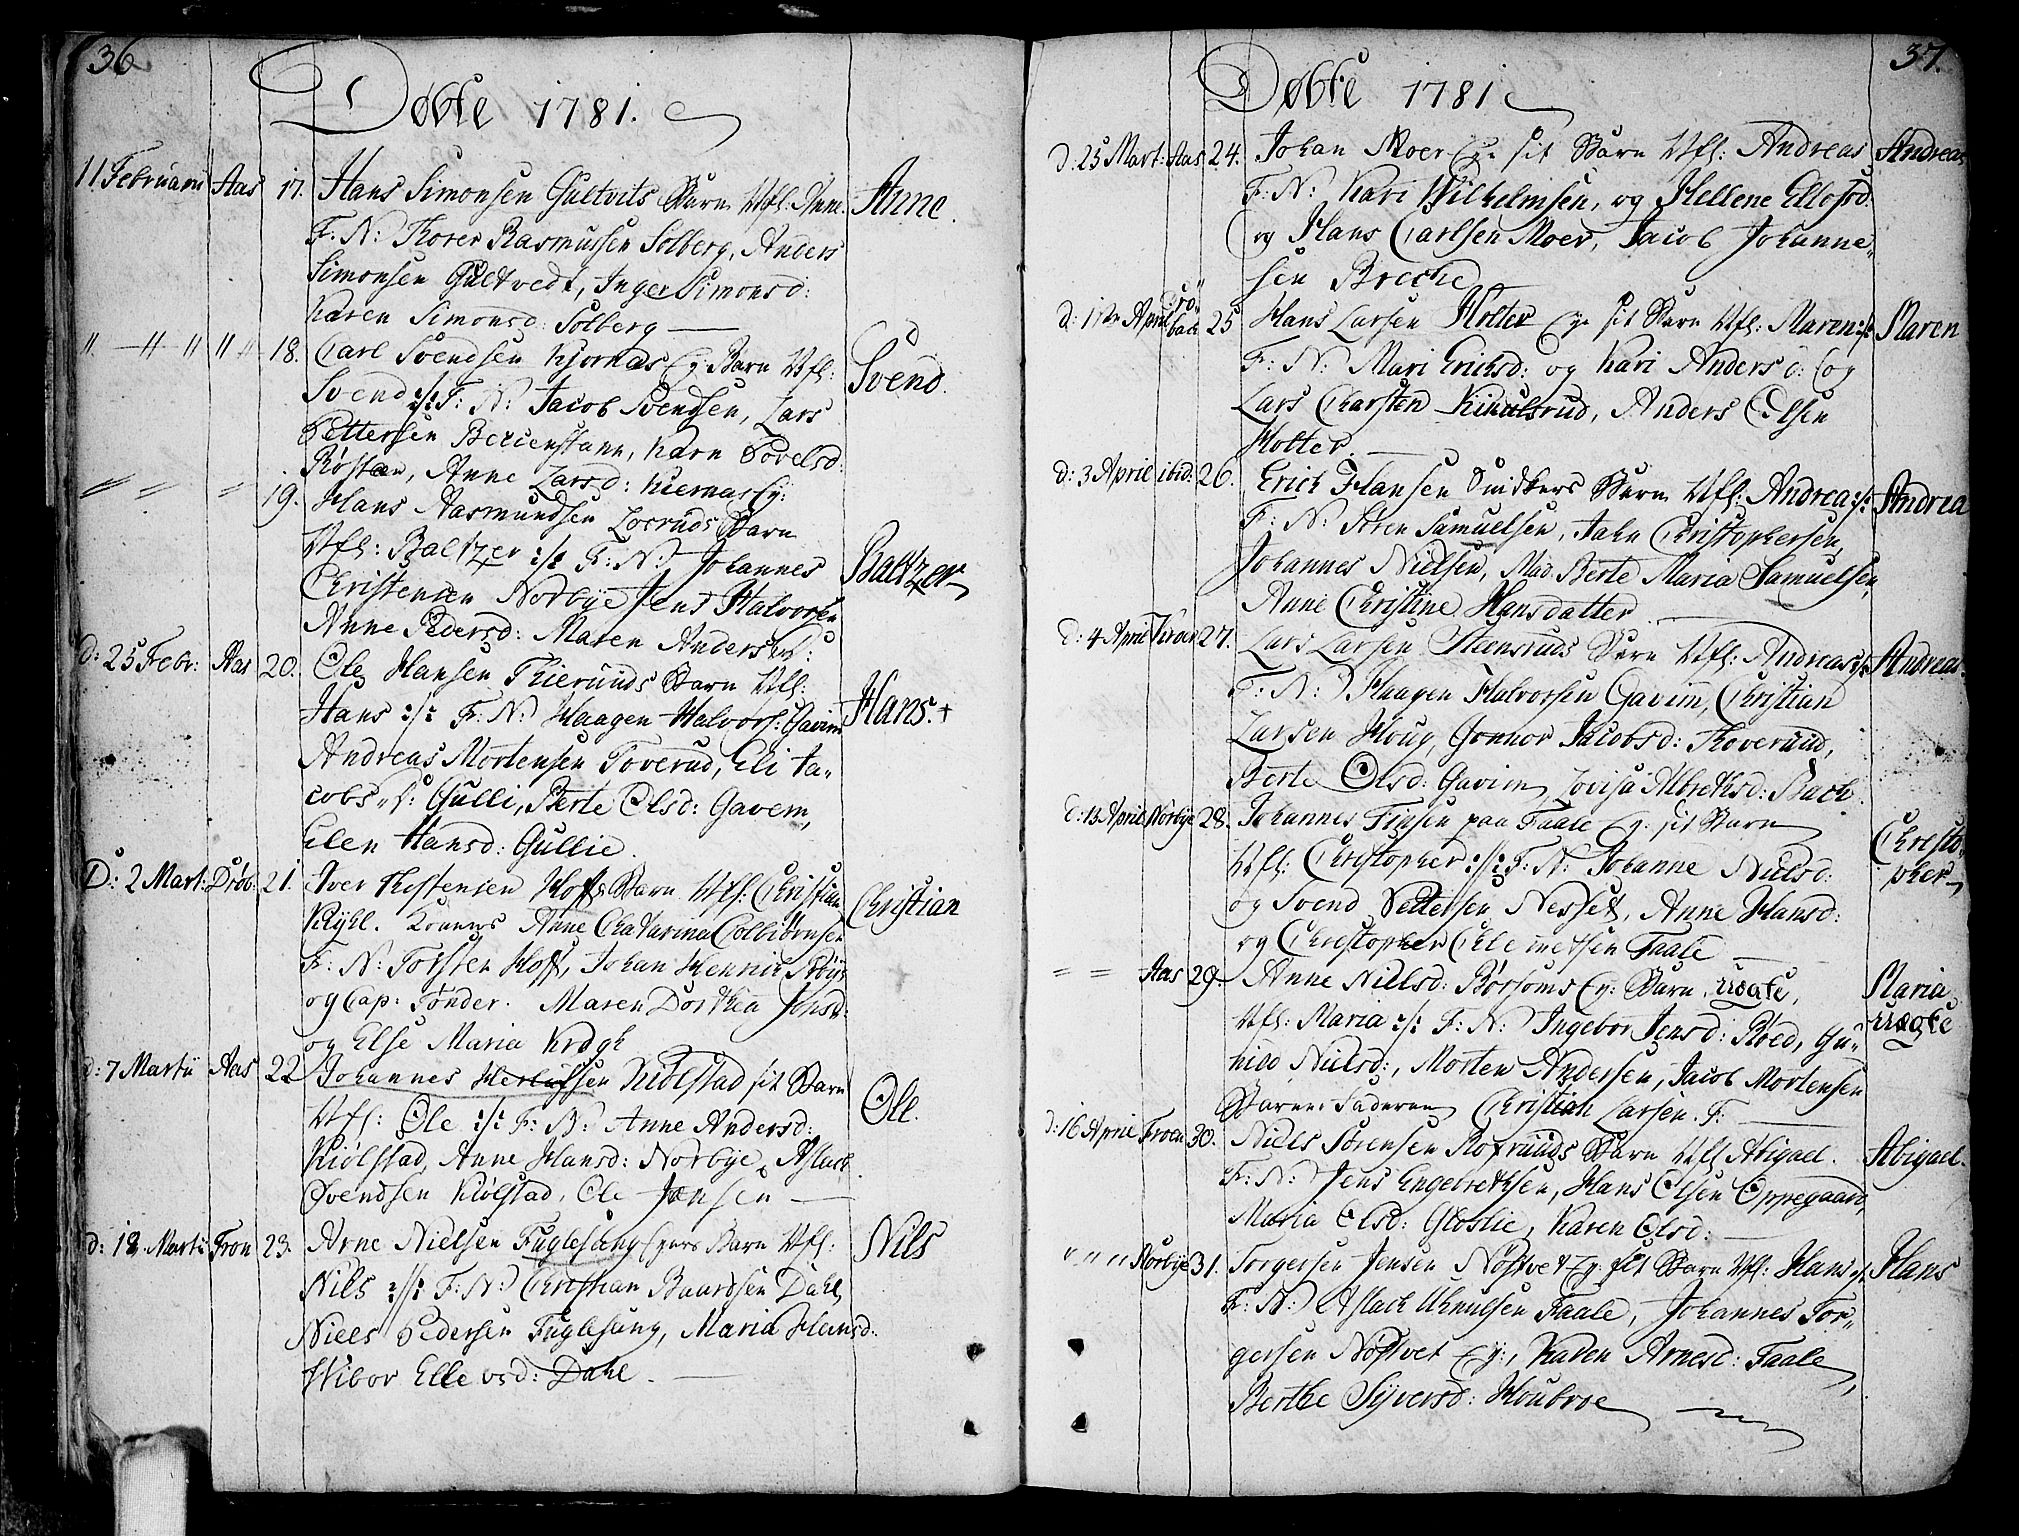 36
Døbte 1781.
11 Februarii Aas 17. Hans Simonsen Gultvits Barn Vfl: Anne. Anne.
F. N: Thorer Rasmussen Solberg, Anders
Simonsen Gultvedt, Inger Simonsd:
Karen Simonsd: Solberg
18. Carl Svendsen Kjornas Ey: Barn Vfl: Svend.
Svend :/: F: N: Jacob Svendsen, Lars
Pettersen, Karn Povelsd:
Røstæn, Anne Larsd: Kiernas Ey:
19. Hans Aasmundsen Losruds Barn
Vfl: Baltzer :/: F: N: Johannes Baltzer
Christensen Norbye Jens Halvorsen
Anne Pedersd: Maren Andersd:
d: 25 Febr: Aas 20. Ole Hansen Thieruuds Barn Vfl:
Hans :/: F: N: Haagen Halvors: Gavim Hans. +
Andreas Mortensen Toverud, Eli Ja-
cobs d: Gulli, Berte Olsd: Gavem,
Elen Hansd: Gullie.
D: 2 Mart: Drøb: 21. Iver Thostensen Hoffs Barn Vfl: Christian Christian
Kyhl. Konens Anne Chatarina Colbiørnsen
F: N: Torsten Hoff, Johan Henrich
og Cap: Tønder. Maren Dorthea Jonsd:
og Else Maria Krogh
d: 7 Martii Aas 22 Johannes Herlufsen Kiølstad sit Barn
Vfl: Ole :/: F: N: Anne Andersd: Ole.
Kiølstad, Anne Hansd: Norbye, Aslach
Svendsen Kiølstad, Ole Jansen
d: 18 Martii Fron 23. Arne Nielsen Fuglesang Eyers Barn Vfl: Nils
Nils :/: F: N: Christian Baardsen Dahl
Niels Pedersen Fuglesang, Maria Hansd:
Wibor Ellevsd: Dahl.
37.
Døbte 1781
d: 25 Mart: Aas 24. Johan Moer Ey: sit Barn Vfl: Andreas Andreas
F: N: Kari Wilhelmsen, og Hellene Ellefsd:
og Hans Carlsen Moer, Jacob Johanne-
sen Breche
April Drøbach 25 Hans Larsen Holter Ey: sit Barn Vfl: Maren :/: Maren
F: N: Mari Eriksd: og Kari Andersd: og
Lars Charsten Kinulsrud, Anders Olsen
Holter.
d: 3 April ibid: 26. Erich Hansen Snidkers Barn Vfl: Andrea :/: Andrea
F: N: Sören Samuelsen, Jahn Christophersen,
Johannes Nielsen, Mad. Berte Maria Samuelsen,
Anne Christine Hansdatter
d: 4 April Kroer 27. Lars Larsen Steensruds Barn Vfl: Andreas :/: Andreas.
F: N: Haagen Halvorsen Gavim, Christian
Larsen Houg, Gonnor Jacobsd: Thoveruud,
Berte Olsd: Gavim, Lovisa Albretsd: Bach.
d: 13 April Norbye 28. Johannes paa Faale Ey: sit Barn
Vfl: Christopher :/: F: N: Johanne Nielsd: Christo-
og Svend Pettersen Nesset, Anne Hansd: pher
og Christopher Clemetsen Faale
Aas 29. Anne Nielsd: Børsoms Ey: Barn uægte, Maria
Vfl: Maria :/: F: N: Ingebor Jensd: Røed, Gu- uægte
nild Nielsd:, Morten Andersen, Jacob Mortensen
Barne Faderen Christian Larsen. F:
d: 16 April Froen 30. Niels Sörensen Rofruuds Barn Vfl Abigael. Abigael.
F: N: Jens Engebrethsen, Hans Olsen Oppegaard,
Maria Olsd: Gloslie, Karen Olsd:
Norbye 31. Torgersen Jensen Nøstvet Ey: sit Barn Vfl: Hans :/: Hans
F: N: Aslach Khnulsen Faale, Johannes Tor-
gersen Nøstvet Ey:, Karen Arnesd: Faale,
Berthe Syversd: Houbroe